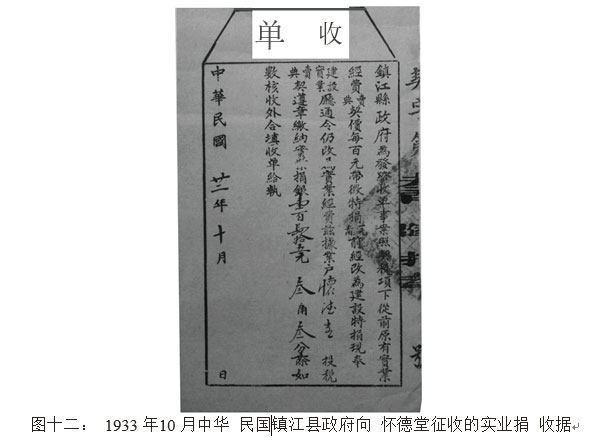 单 收
號
鎮江縣政府為發給收單事案照契稅項下從前原有實業
經費賣典契價每百元帶徵特捐 前經改為建設特捐現奉
建設實業廳通令仍改 實業經費茲據業户懷德堂 投稅
賣典契遵章繳納實業捐銀壹百 拾 元 叁角叁分 如
數核收外合填收單給執
中華民國 廿二年 十月 日
图十二： 1933 年10 月中华 民国镇江县政府向 怀德堂征收的实业捐 收据